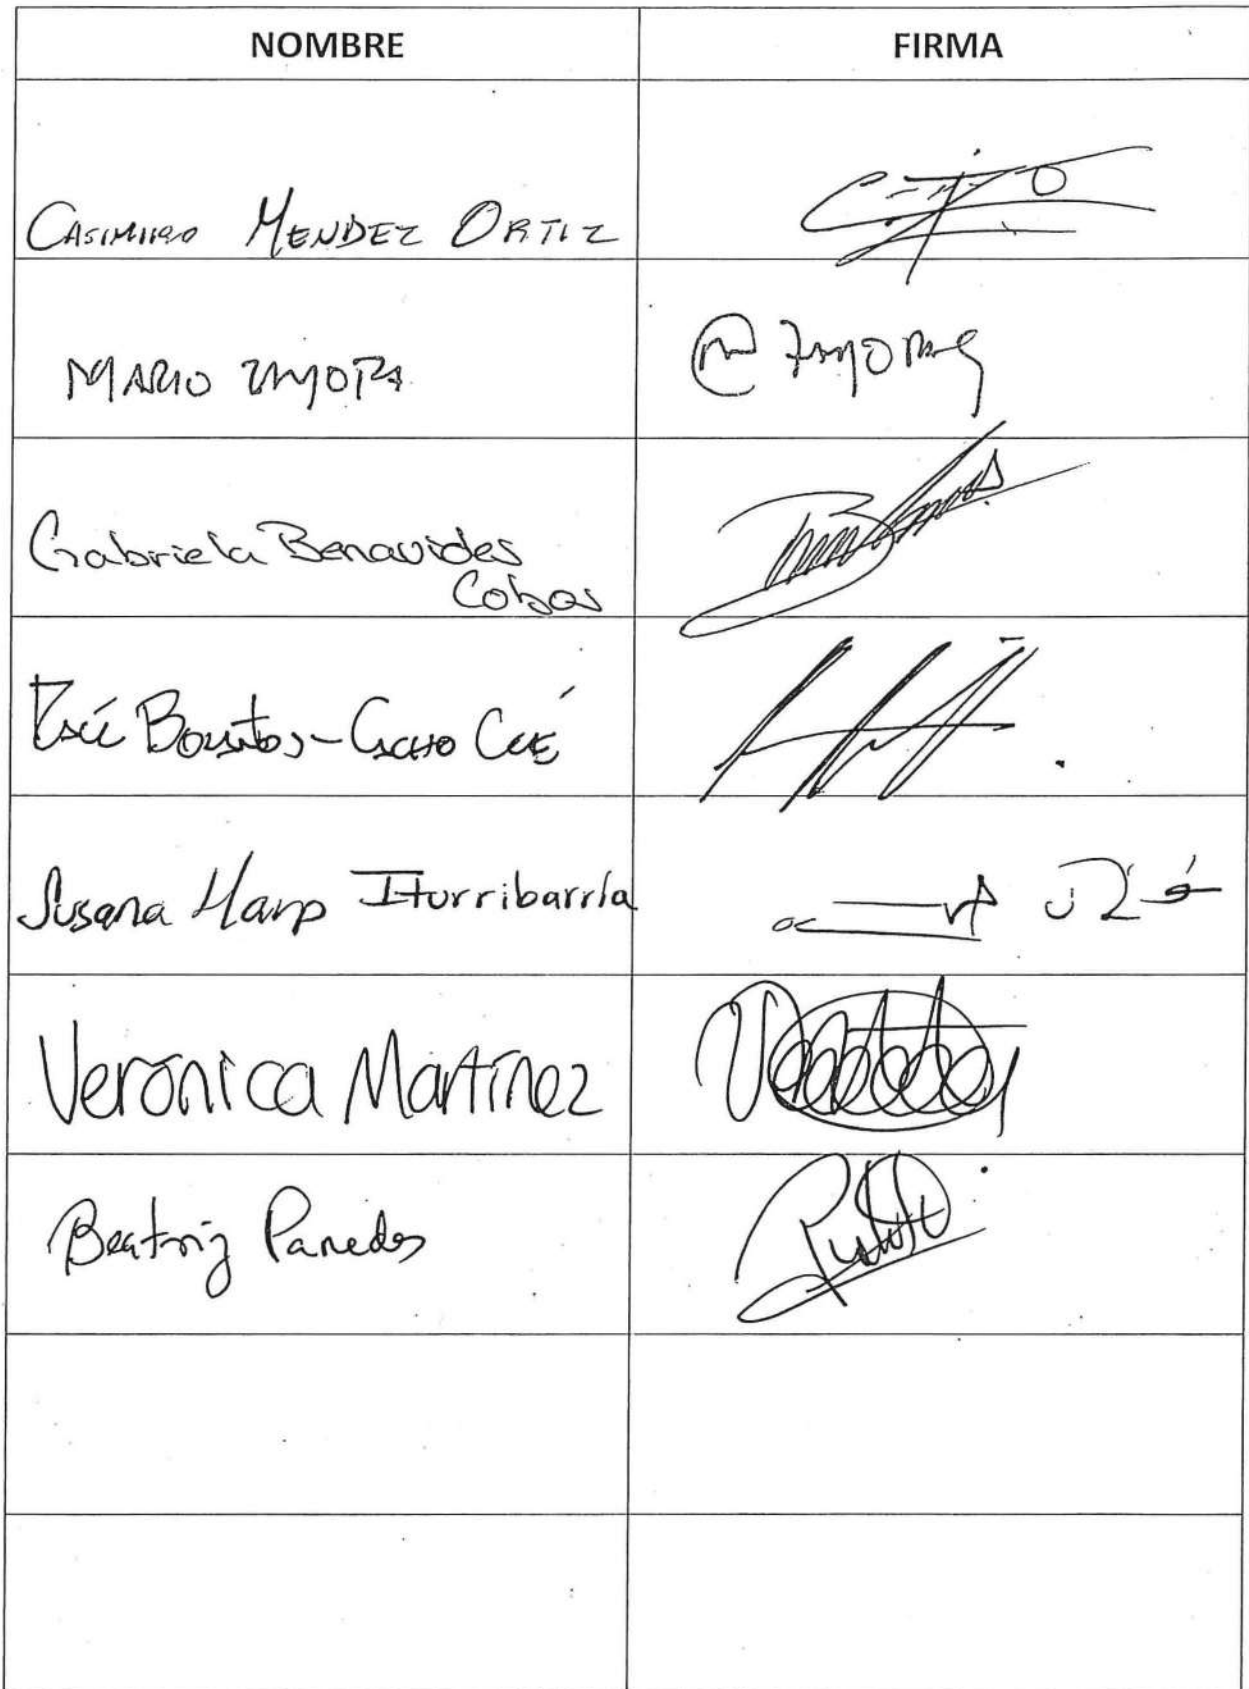 NOMBRE FIRMA
CASIMIRO MENDEZ ORTIZ
MARIO ZAMORA
Gabriela Benavides
Cobos
Raúl Bolaños-Cacho Cué
Susana Harp Iturribarría
Verónica Martínez
Beatriz Paredes